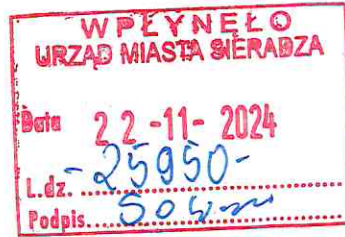 WPŁYNĘŁO
URZĄD MIASTA SIERADZA
Data 22-11-2024
L.dz. -25950-
Podpis